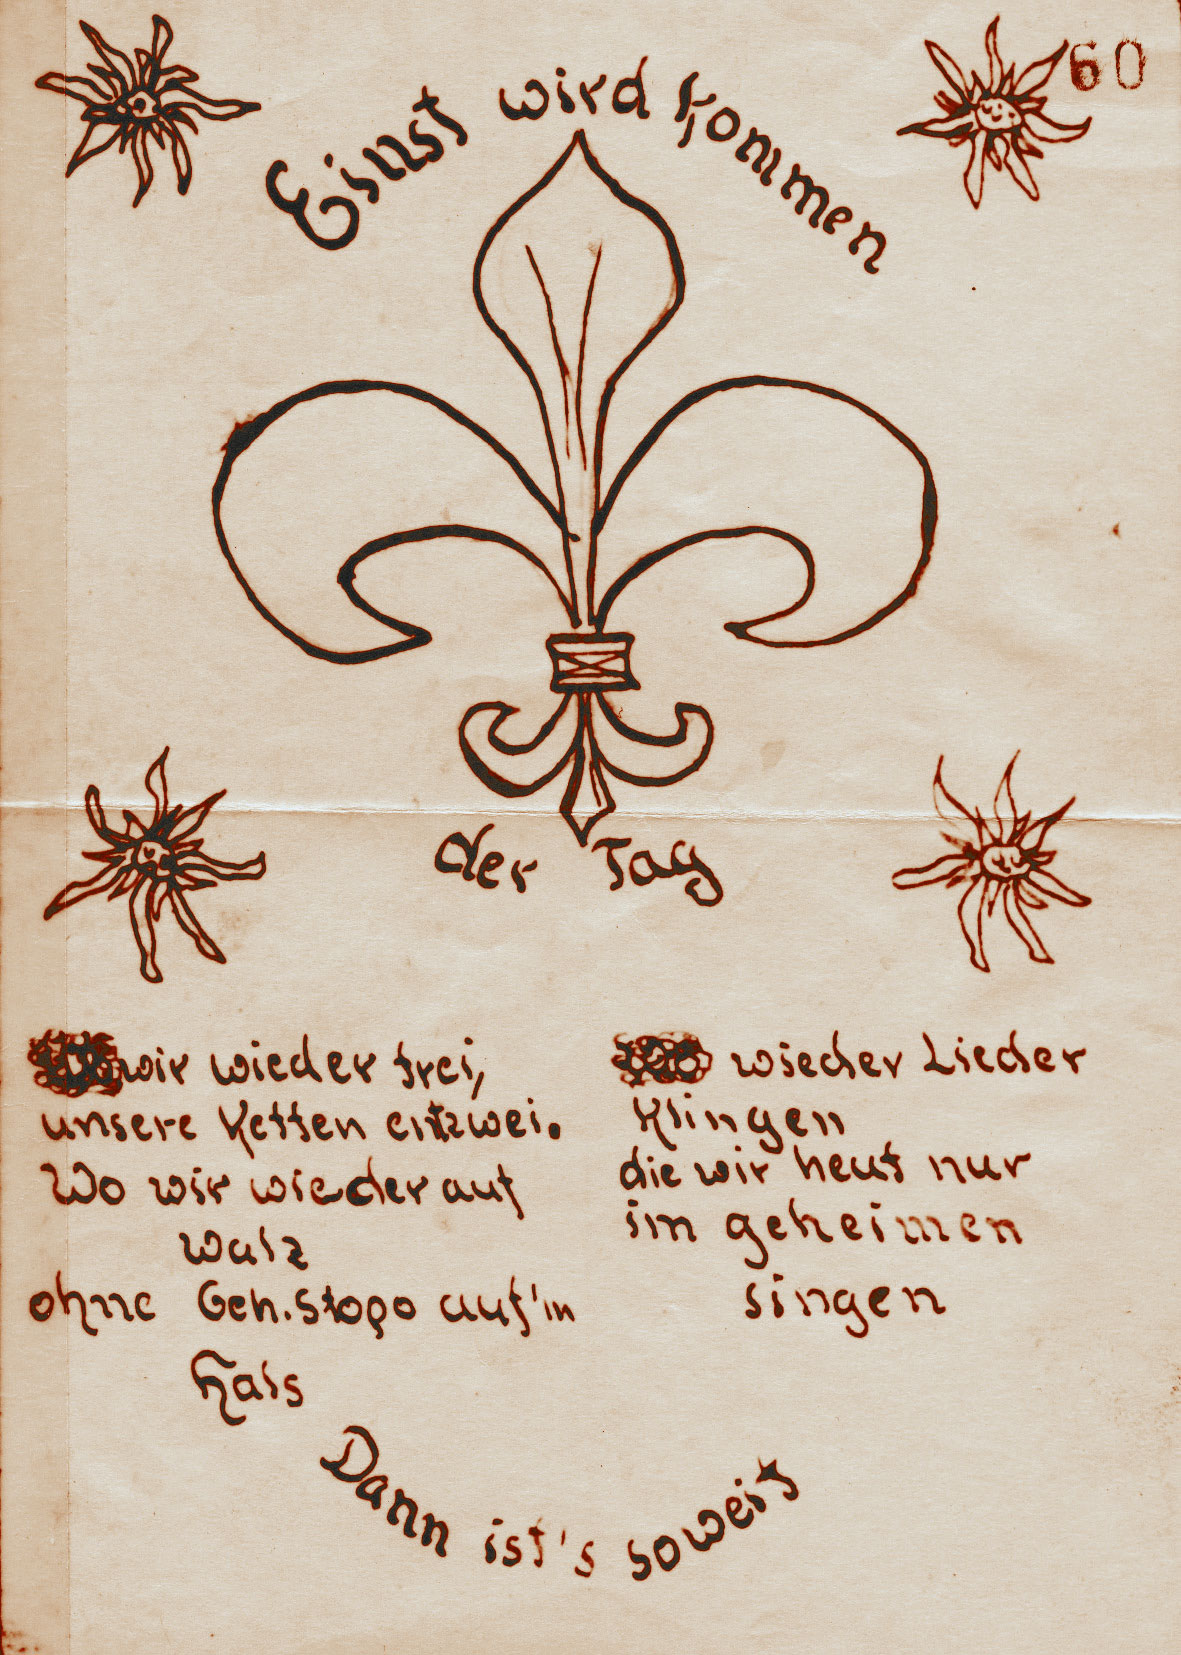 60
Einst wird kommen
der Tag
wir wieder frei,
unsere Ketten entzwei.
Wo wir wieder auf
walz
ohne Geh.Stopo auf'm
Hals
wieder Lieder
klingen
die wir heut nur
im geheimen
singen
Dann ist's soweit